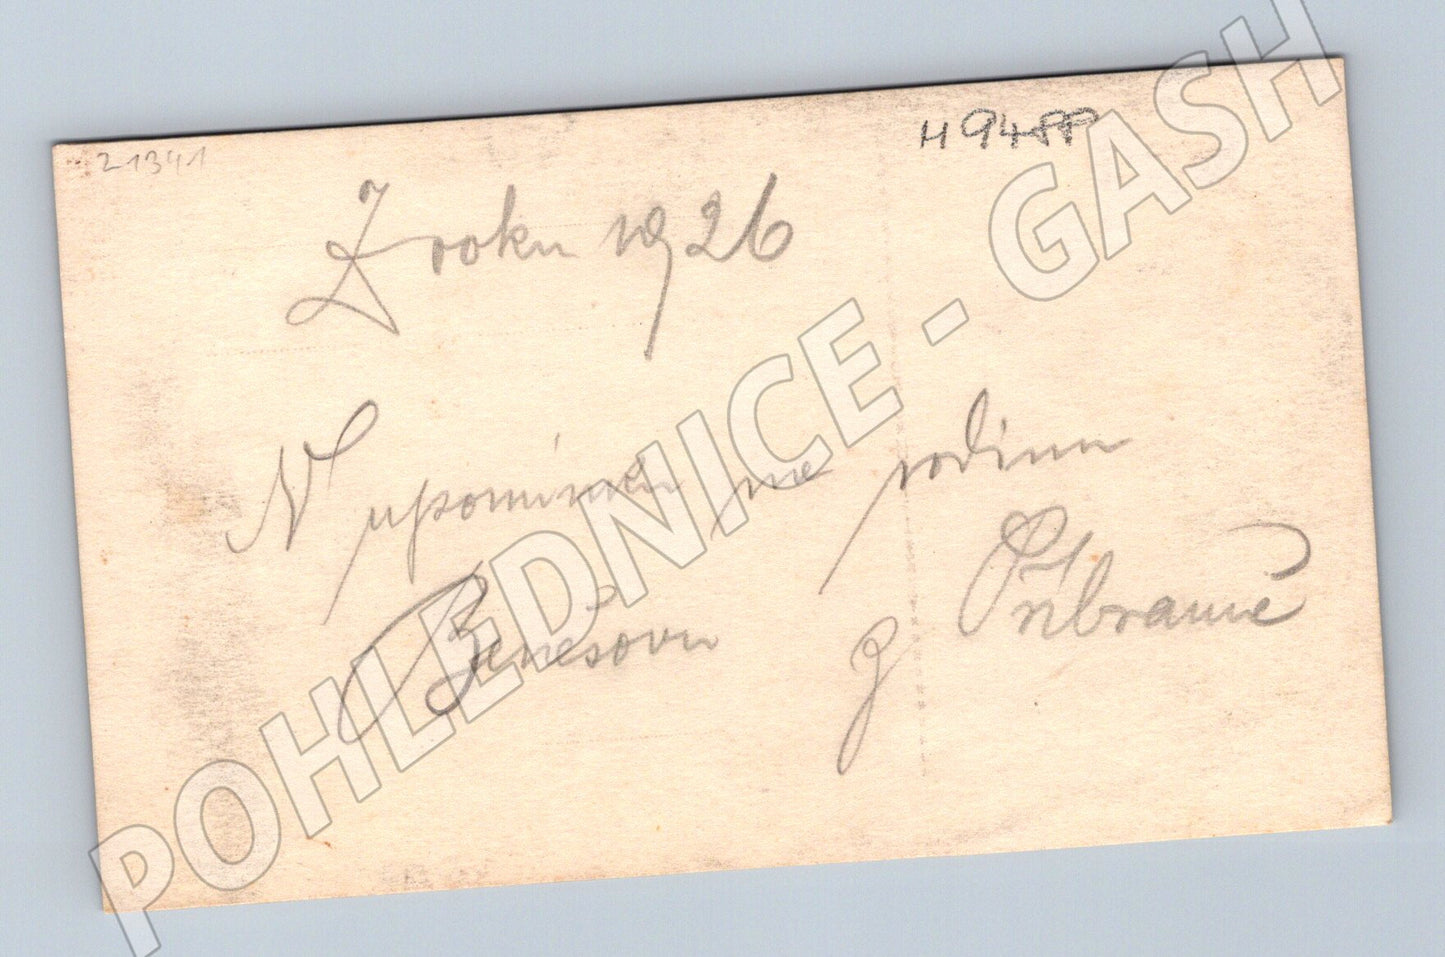 21341
H 9488
Z roku 1926
V upomínku na rodinu
Benešovu z Příbramě
POHLEDNICE - GASH